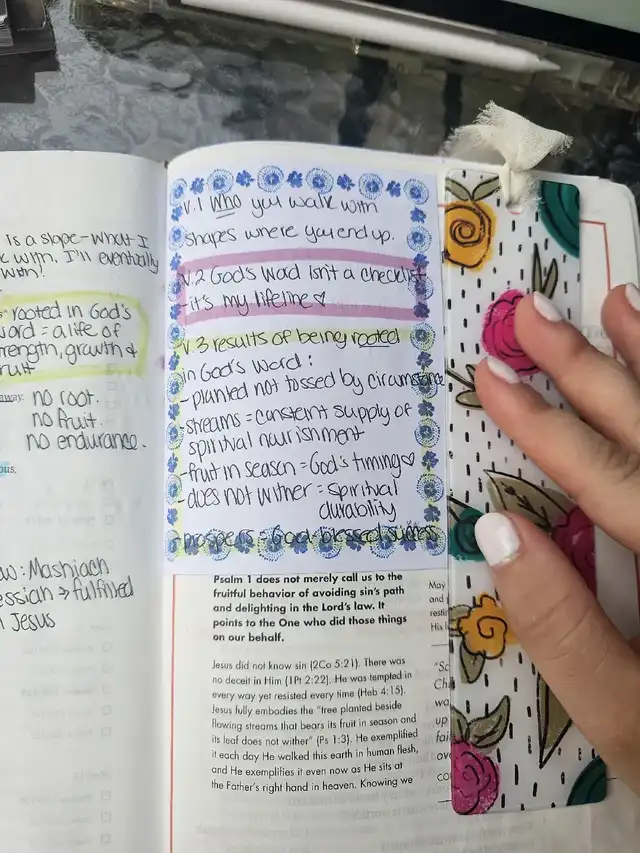 is a slope-what I
with. I'll eventually
with!
rooted in God's
word = a life of
strength, growth &
fruit
away: no root.
no fruit.
no endurance.
ous.
Mashiach
essian → fulfilled
Jesus
v.1 Who you walk with
shapes where you end up.
v.2 God's word isn't a checklist
-it's my lifeline♡
v.3 results of being rooted
in God's word:
-planted not tossed by circumstance
-streams = constant supply of
spiritual nourishment
-fruit in season = God's timing♡
-does not wither = spiritual
durability
-prospers = God-blessed success
Psalm 1 does not merely call us to the
fruitful behavior of avoiding sin's path
and delighting in the Lord's law. It
points to the One who did those things
on our behalf.
Jesus did not know sin (2Co 5:21). There was
no deceit in Him (1Pt 2:22). He was tempted in
every way yet resisted every time (Heb 4:15).
Jesus fully embodies the "tree planted beside
flowing streams that bears its fruit in season and
its leaf does not wither" (Ps 1:3). He exemplified
it each day He walked this earth in human flesh,
and He exemplifies it even now as He sits at
the Father's right hand in heaven. Knowing we
May
and
restin
His
"So
Chi
wo
up
fait
ove
co